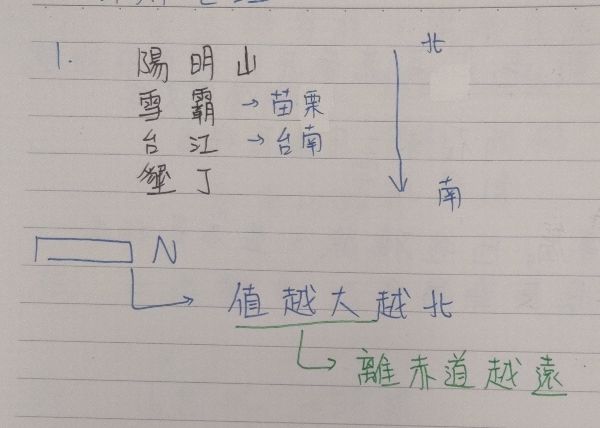 1. 陽明山
雪霸→苗栗
台江→台南
墾丁
北
南
N
值越大越北
離赤道越遠